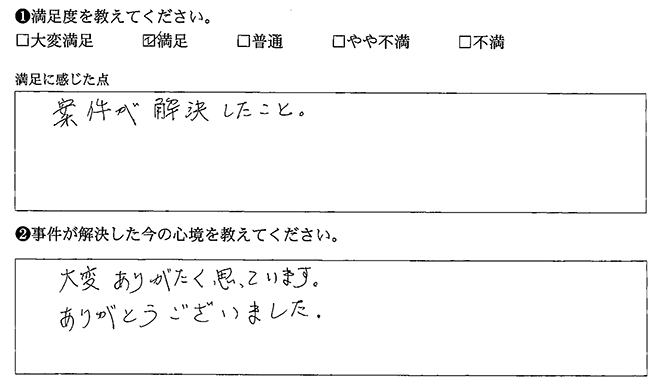 ❶満足度を教えてください。
□大変満足 ☑満足 □普通 □やや不満 □不満
満足に感じた点
案件が解決したこと。
❷事件が解決した今の心境を教えてください。
大変ありがたく思っています。
ありがとうございました.